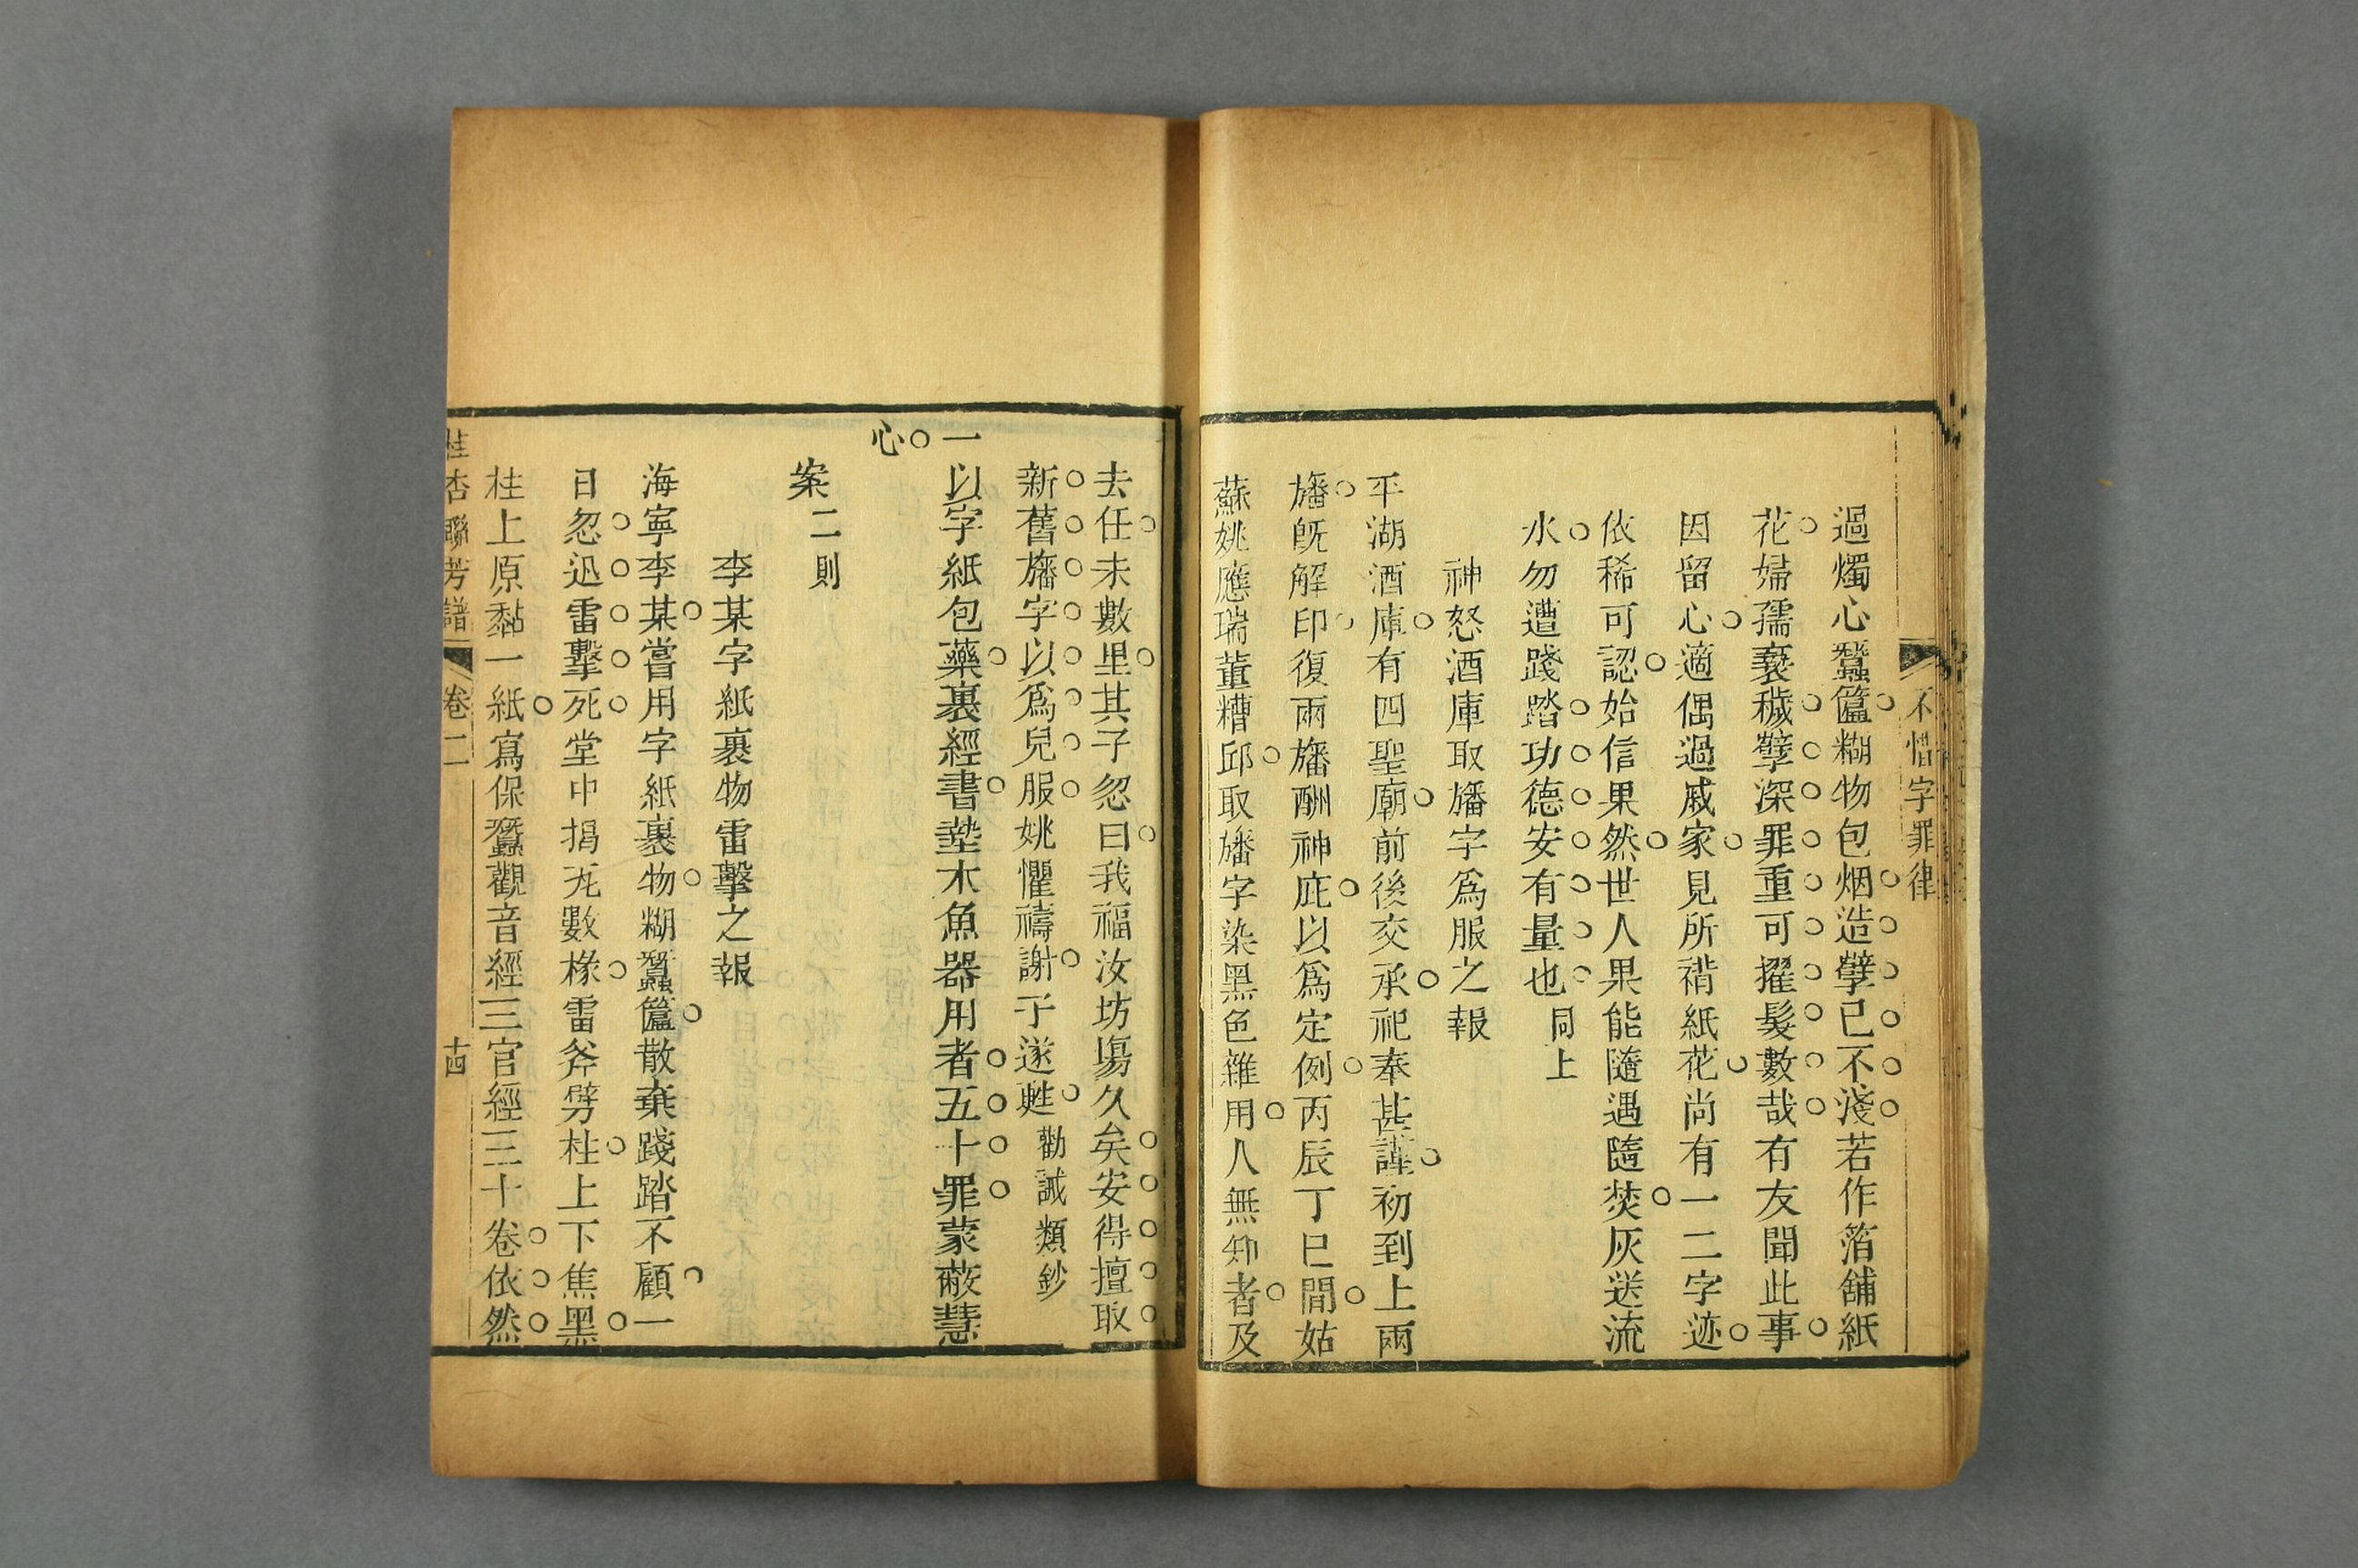 不惜字罪律
過燭心蠶簠糊物包烟造孽已不淺若作箔舖紙
花婦孺褻穢孽深罪重可擢髮數哉有友聞此事
因留心適偶過戚家見所褙紙花尚有一二字迹
依稀可認始信果然世人果能隨遇隨焚灰送流
水勿遭踐踏功德安有量也同上
神怒酒庫取旛字爲服之報
平湖酒庫有四聖廟前後交承祀奉甚謹初到上兩
旛旣解印復兩旛酬神庇以爲定例丙辰丁巳間姑
蘇姚應瑞董糟邱取旛字染黑色雜用人無知者及
去任未數里其子忽曰我福汝坊塲久矣安得擅取
新舊旛字以爲兒服姚懼禱謝子遂甦勸誡類鈔
一以字紙包藥裹經書墊木魚器用者五十罪蒙蔽慧
心
案二則
李某字紙裹物雷擊之報
海寧李某嘗用字紙裹物糊蠶簠散棄踐踏不顧一
日忽迅雷擊死堂中揭瓦數椽雷斧劈柱上下焦黑
柱上原黏一紙寫保蠶觀音經三官經三十卷依然
桂杏聯芳譜 卷二 十四